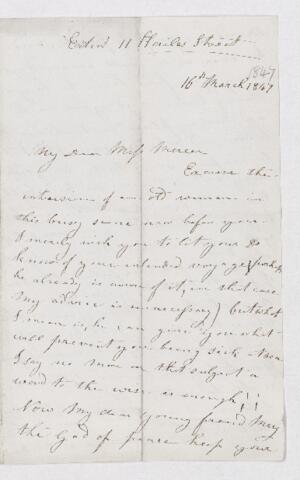 Edinr 11 St Giles Street
1847
16th March 1847
My Dear Miss Mercer
Excuse the
intrusion of an old woman in
this busy scene now before you
I merely wish you to let your Dr
know of your intended voyage (perhaps
he already is aware of it, in that case
my advice is unnecessary) but what
I mean is, he can give you what
will prevent you being sick
I say no more on that subject a
word to the wise is enough!!
Now My dear young friend May
the God of peace keep your